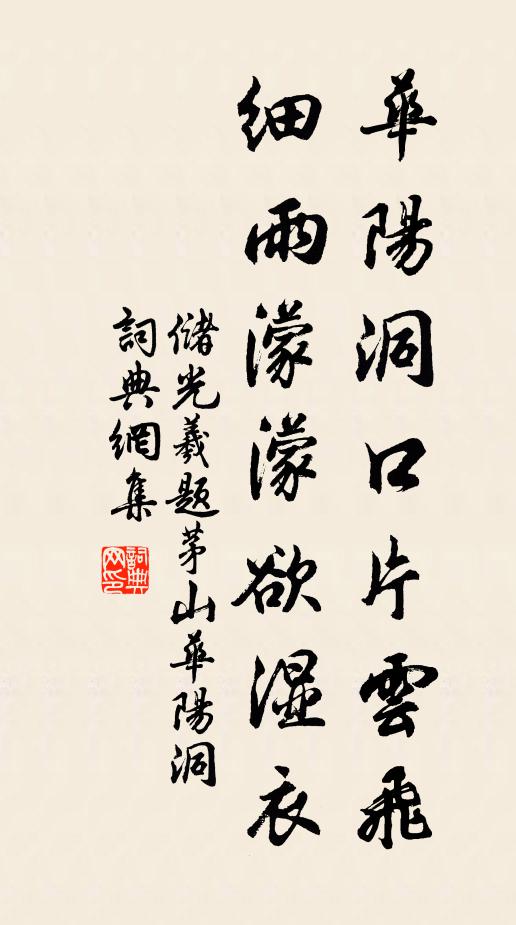 華陽洞口片雲飛
細雨濛濛欲湿衣
儲光羲題茅山華陽洞
詞典網集
詞典网印